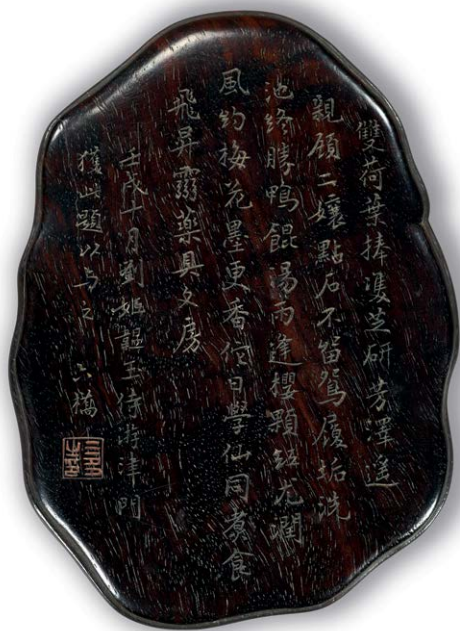 雙荷葉捧溲芝研芳澤進
親顧二孃點石不留鴛履垢洗
池終勝鴨餛湯雨逢櫻顆缺尤潤
風約梅花墨更香佗日學仙同煮食
飛昇霧藥具文房
壬戌十月劉姬韞玉侍游津門
獲此題以与之 六橋
三多